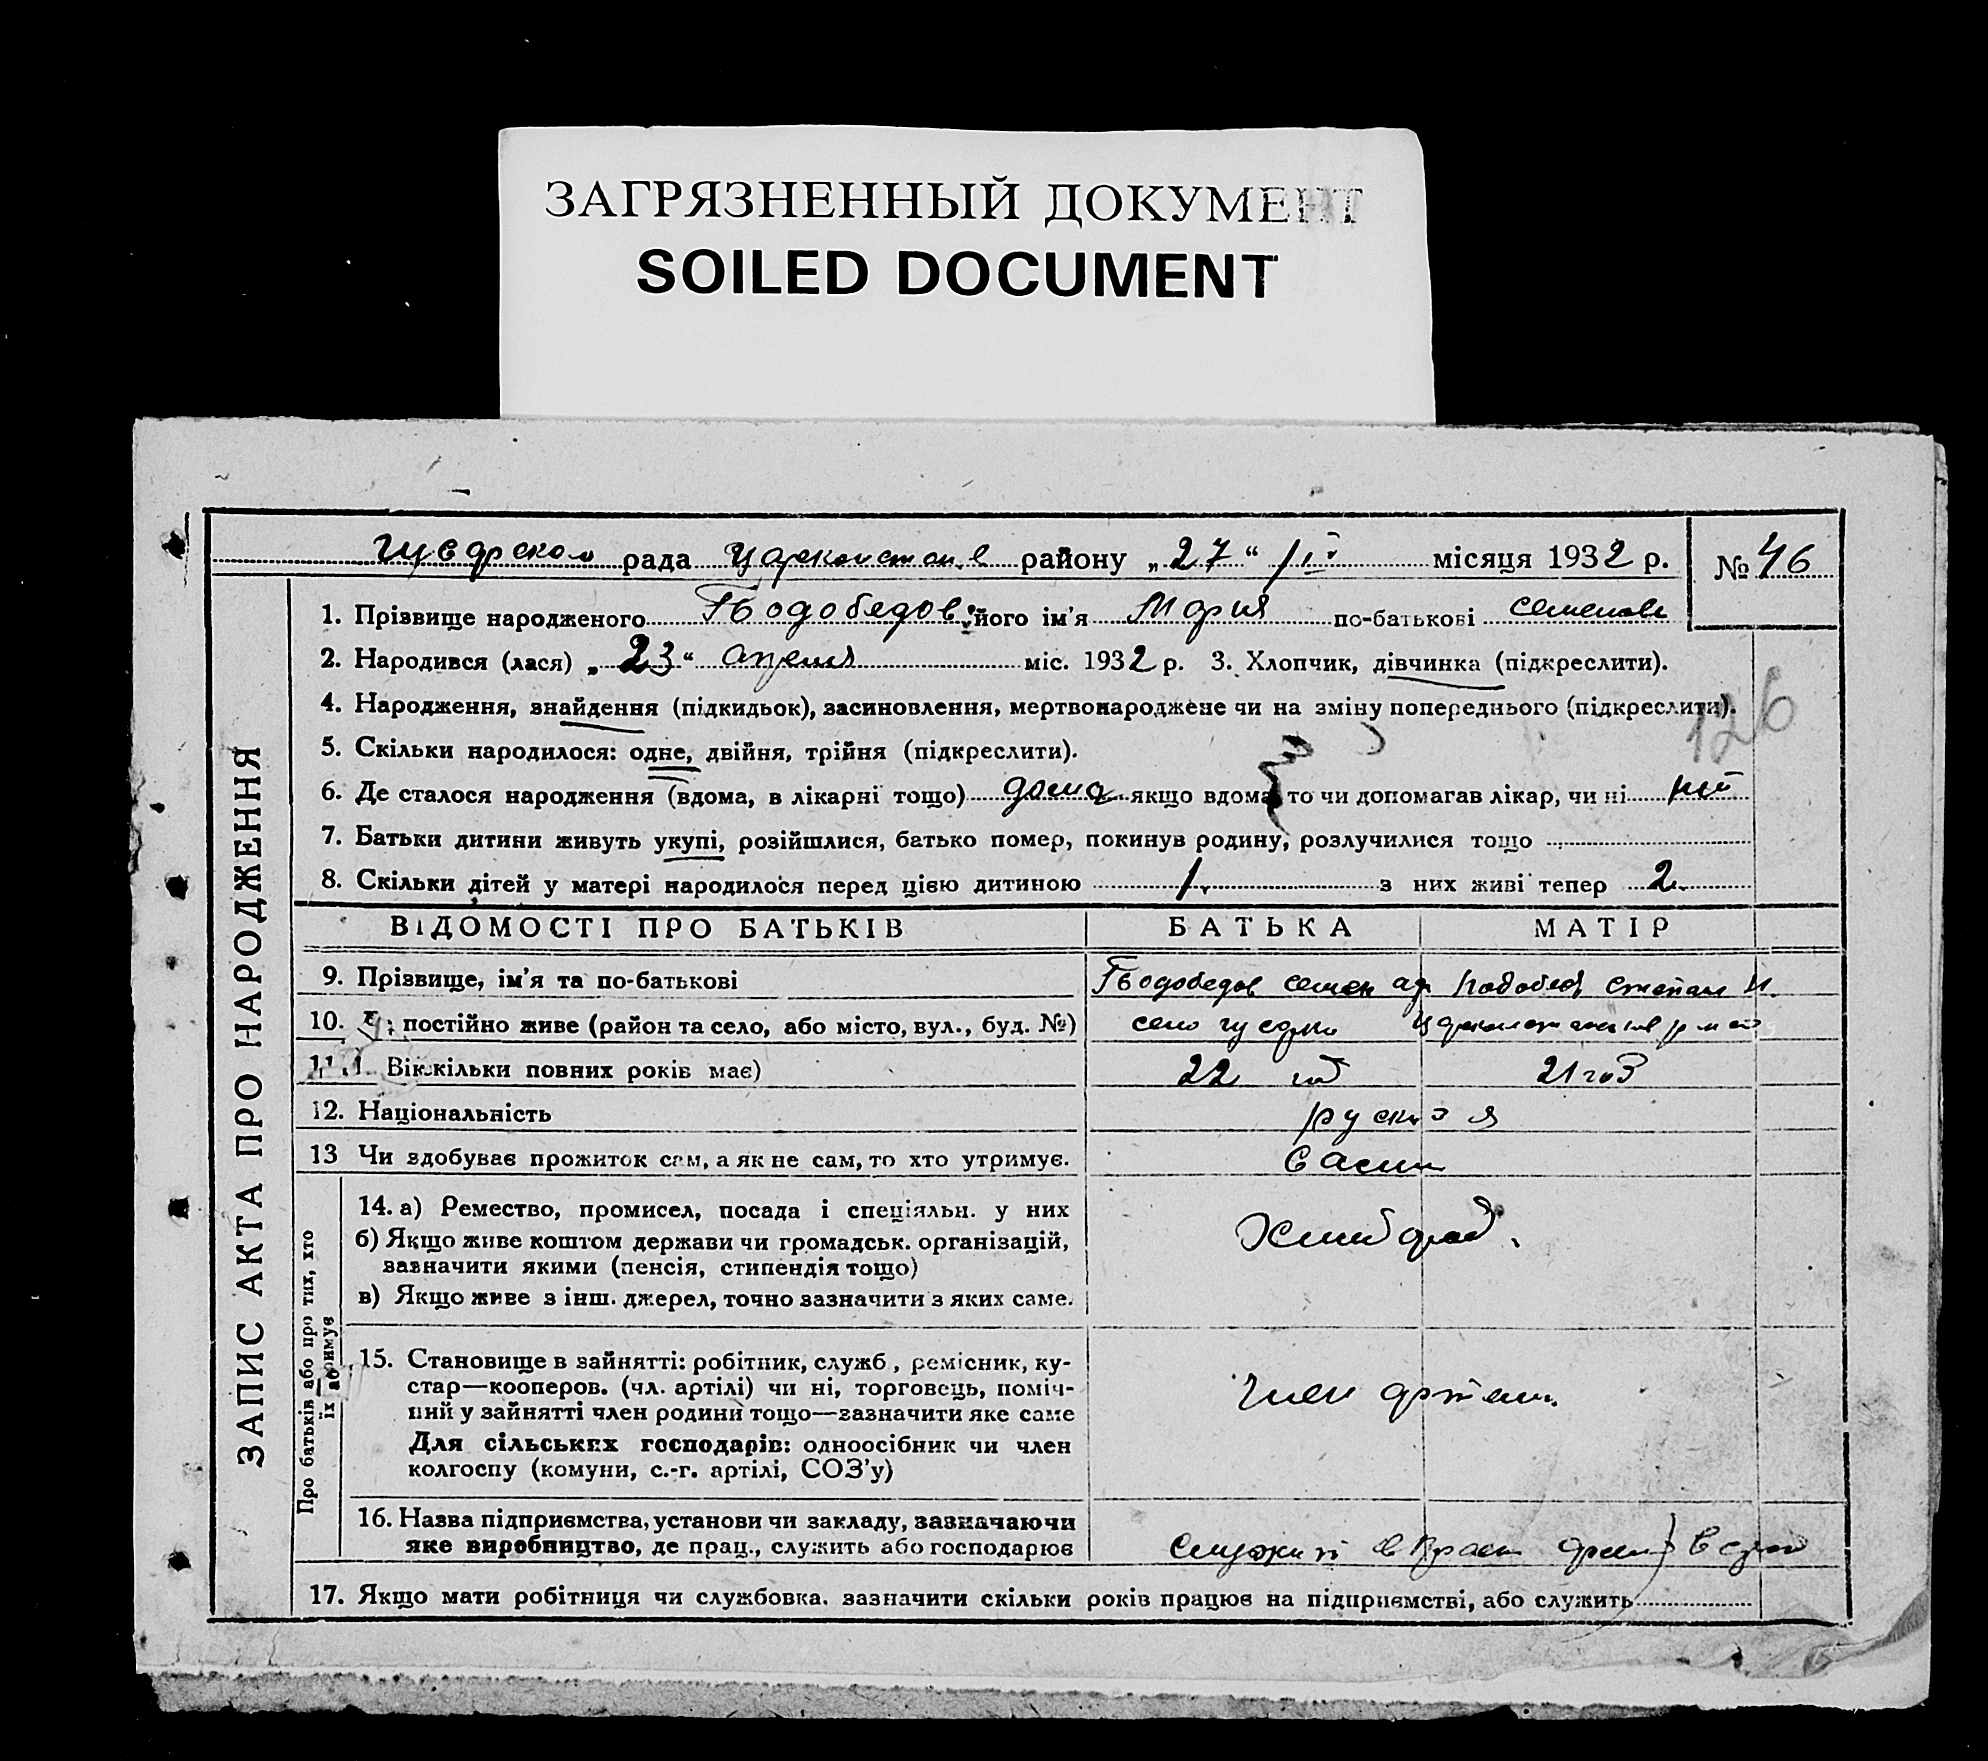 ЗАГРЯЗНЕННЫЙ ДОКУМЕНТ
SOILED DOCUMENT
рада району „27“ місяця 1932 р. № 46
1. Прізвище народженого його ім'я Мария по-батькові
2. Народився (лася) „23“ апреля міс. 1932 р. 3. Хлопчик, дівчинка (підкреслити).
4. Народження, знайдення (підкидьок), засиновлення, мертвонароджене чи на зміну попереднього (підкреслити).
126
5. Скільки народилося: одне, двійня, трійня (підкреслити).
6. Де сталося народження (вдома, в лікарні тощо) дома якщо вдома, то чи допомагав лікар, чи ні нет
7. Батьки дитини живуть укупі, розійшлися, батько помер, покинув родину, розлучилися тощо
8. Скільки дітей у матері народилося перед цією дитиною 1. з них живі тепер 2.
ВІДОМОСТІ ПРО БАТЬКІВ БАТЬКА МАТІР
9. Прізвище, ім'я та по-батькові Семен
10. постійно живе (район та село, або місто, вул., буд. №) село
11. Вік скільки повних років має) 22 год 21 год
12. Національність руская
13 Чи здобуває прожиток сам, а як не сам, то хто утримує. Сами
14. а) Ремество, промисел, посада і спеціяльн. у них
б) Якщо живе коштом держави чи громадськ. організацій,
зазначити якими (пенсія, стипендія тощо)
в) Якщо живе з інш. джерел, точно зазначити з яких саме.
15. Становище в зайнятті: робітник, служб., ремісник, ку-
стар—кооперов. (чл. артілі) чи ні, торговець, поміч-
ний у зайнятті член родини тощо—зазначити яке саме
член артели.
Для сільських господарів: одноосібник чи член
колгоспу (комуни, с.-г. артілі, СОЗ'у)
16. Назва підприємства, установи чи закладу, зазначаючи
яке виробництво, де прац., служить або господарює служит в
17. Якщо мати робітниця чи службовка, зазначити скільки років працює на підприємстві, або служить
ЗАПИС АКТА ПРО НАРОДЖЕННЯ
Про батьків або про тих, хто
їх утримує